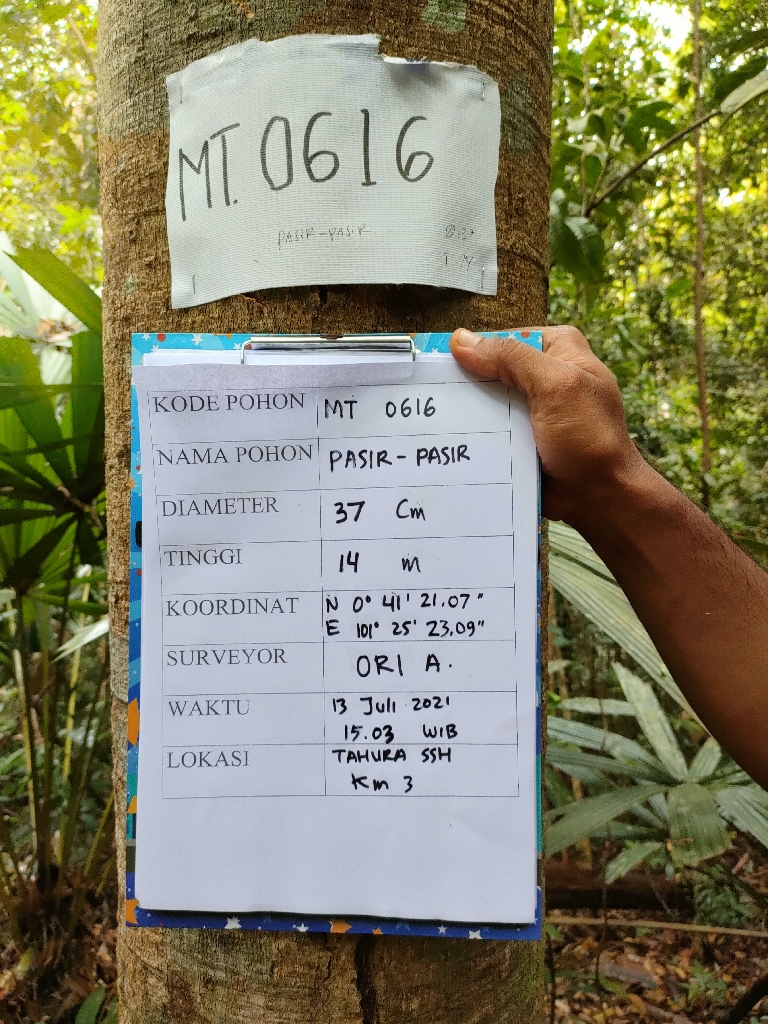 MT. 0616
PASIR-PASIR
KODE POHON MT 0616
NAMA POHON PASIR-PASIR
DIAMETER 37 Cm
TINGGI 14 m
KOORDINAT N 0° 41' 21.07"
E 101° 25' 23.09"
SURVEYOR ORI A.
WAKTU 13 Juli 2021
15.03 WIB
LOKASI TAHURA SSH
Km 3